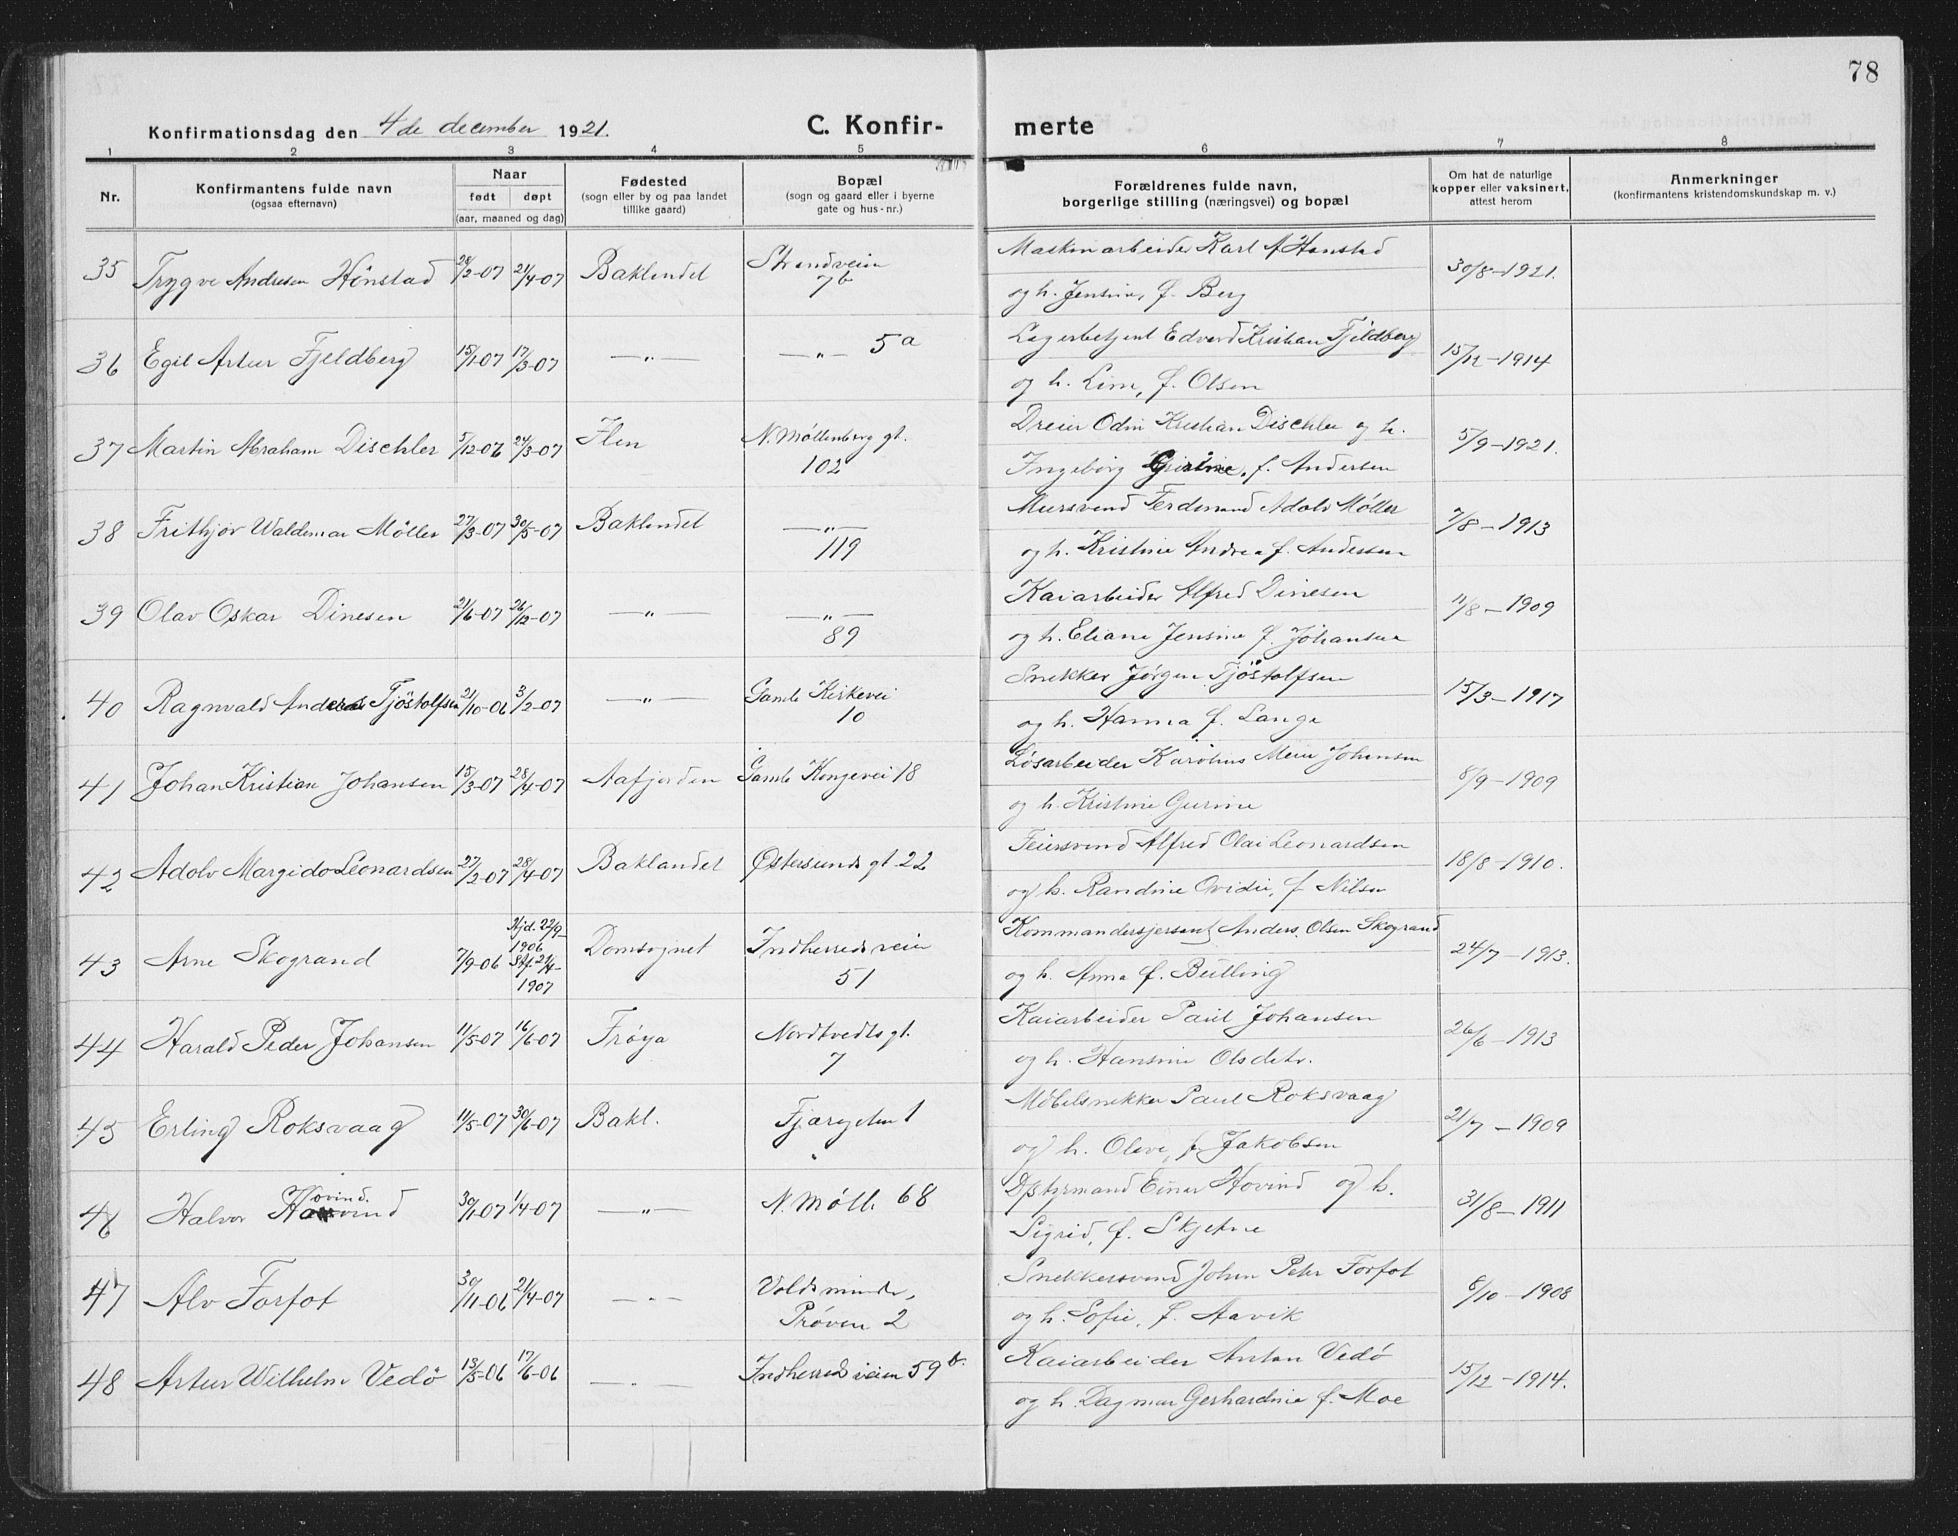 78
Konfirmationsdag den 4de december 1921.
C. Konfir- merte
1 2 3 4 5 6 7 8
Nr.
Konfirmantens fulde navn
(ogsaa efternavn)
Naar
født døpt
(aar, maaned og dag)
Fødested
(sogn eller by og paa landet
tillike gaard)
Bopæl
(sogn og gaard eller i byerne
gate og hus-nr.)
Forældrenes fulde navn,
borgerlige stilling (næringsvei) og bopæl
Om hat de naturlige
kopper eller vaksinert,
attest herom
Anmerkninger
(konfirmantens kristendomskundskap m. v.)
35 Trygve Andresen Hönstad 28/2-07 21/4-07 Baklandet Strandveien 7b
Maskinarbeider Karl A Hanstad
og h. Jensine, f. Berg
30/8-1921.
36 Egil Artur Fjeldberg 15/1-07 17/3-07 —„— —„— 5a
Lagerbetjent Edvard Kristian Fjeldberg
og h. Lina, f. Olsen
15/12-1914
37 Martin Abraham Dischler 5/12-06 24/3-07 Ilen N. Møllenberg gt. 102
Dreier Odin Kristian Dischler og h.
Ingeborg, f. Andersen
5/9-1921.
38 Frithjov Waldemar Möller 27/3-07 30/5-07 Baklandet —„— 119
Mursvend Ferdinand Adolv Møller
og h. Kristine Andrea f. Andersen
7/8-1913
39 Olav Oskar Dinesen 21/6-07 26/12-07 —„— —„— 89
Kaiarbeider Alfred Dinesen
og h. Eliane Jensine f. Johansen
11/8-1909
40 Ragnvald Andreas Tjöstolfsen 21/10-06 3/2-07 —„— Gamle Kirkevei 10
Snekker Jørgen Tjöstolfsen
og h. Hanna f. Lange
15/3-1917
41 Johan Kristian Johansen 15/3-07 28/4-07 Aafjorden Gamle Kongevei 18
Løsarbeider Karolius Meier Johansen
og h. Kristine Gurine
8/9-1909
42 Adolv Margido Leonardsen 27/2-07 28/4-07 Baklandet Østersunds gt. 22
Feiersvend Alfred Olai Leonardsen
og h. Randine Ovidie, f. Nilsen
18/8-1910.
43 Arne Skogrand 7/9-06 Hjd. 22/9-
1906
Stf. 21/4-
1907
Domsognet Indherredsveien 51
Kommandersjersant Anders Olsen Skogrand
og h. Anna f. Bulling
24/7-1913.
44 Harald Peder Johansen 11/5-07 16/6-07 Frøya Nordtvedts gt. 7
Kaiarbeider Paul Johansen
og h. Hansine Olsdetr.
26/6-1913
45 Erling Roksvaag 11/5-07 30/6-07 Bakl. Fjæregaten 1
Møbelsnekker Paul Roksvaag
og h. Olave, f. Jakobsen
21/7-1909
46 Halvor Hovind 30/1-07 1/4-07 —„— N. Mölle. 68
Dpstyrmand Einar Hovind og h.
Sigrid, f. Skjetne
31/8-1911
47 Alv Forfot 30/11-06 21/4-07 —„— Voldsminde,
Prøven 2
Snekkersvend Johan Peter Forfot
og h. Sofie, f. Aavik
8/10-1908
48 Artur Wilhelm Vedö 13/5-06 17/6-06 —„— Indherredsveien 59b.
Kaiarbeider Anton Vedö
og h. Dagmar Gerhardine f. Moe
15/12-1914.